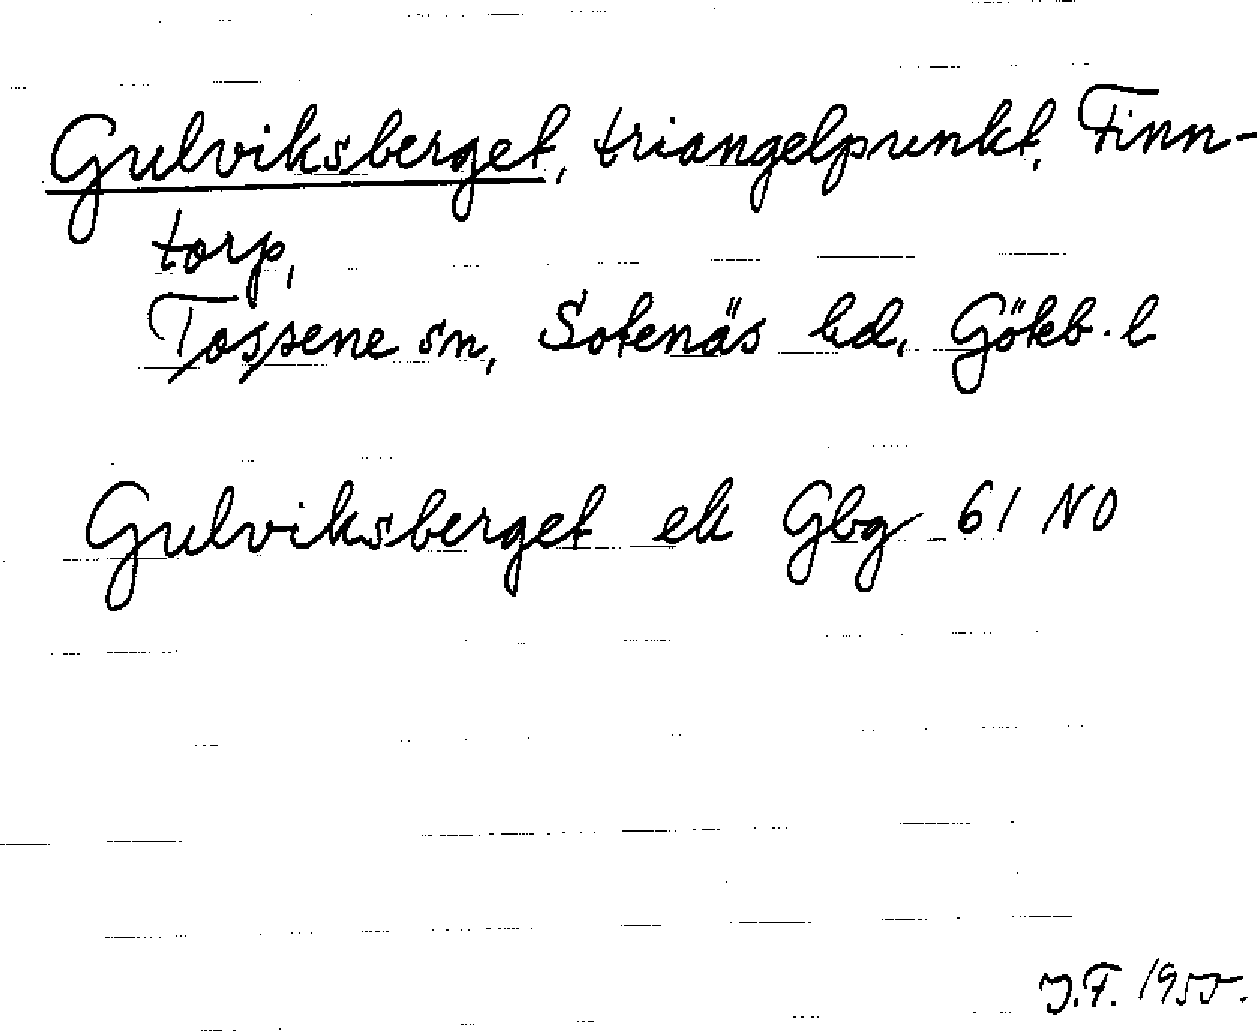 Gulviksberget, triangelpunkt, Finn-
torp,
Tossene sn, Sotenäs hd, Gökb. l
Gulviksberget ek Gbg 61 NO
J.F. 1955.